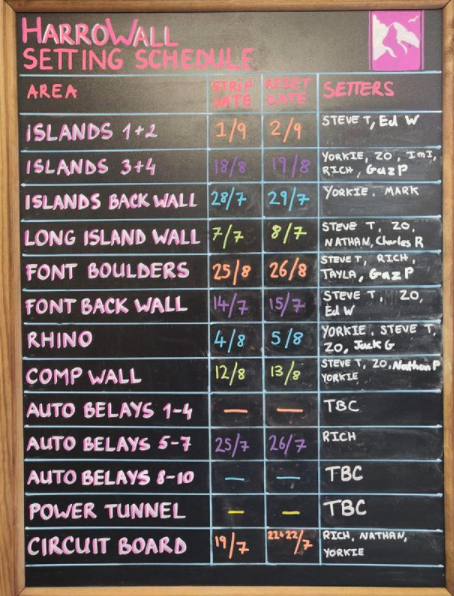 HARROWALL
SETTING SCHEDULE
AREA STRIP DATE RESET DATE SETTERS
ISLANDS 1+2 1/9 2/9 STEVE T, Ed W
ISLANDS 3+4 18/8 19/8 YORKIE, ZO, IMI,
RICH, Gaz P
ISLANDS BACK WALL 28/7 29/7 YORKIE, MARK
LONG ISLAND WALL 7/7 8/7 STEVE T, ZO,
NATHAN, Charles R
FONT BOULDERS 25/8 26/8 STEVE T, RICH,
TAYLA, Gaz P
FONT BACK WALL 14/7 15/7 STEVE T, ZO,
Ed W
RHINO 4/8 5/8 YORKIE, STEVE T,
ZO, Jack G
COMP WALL 12/8 13/8 STEVE T, ZO, Nathan P
YORKIE
AUTO BELAYS 1-4 — — TBC
AUTO BELAYS 5-7 25/7 26/7 RICH
AUTO BELAYS 8-10 — — TBC
POWER TUNNEL — — TBC
CIRCUIT BOARD 19/7 /7 RICH, NATHAN,
YORKIE